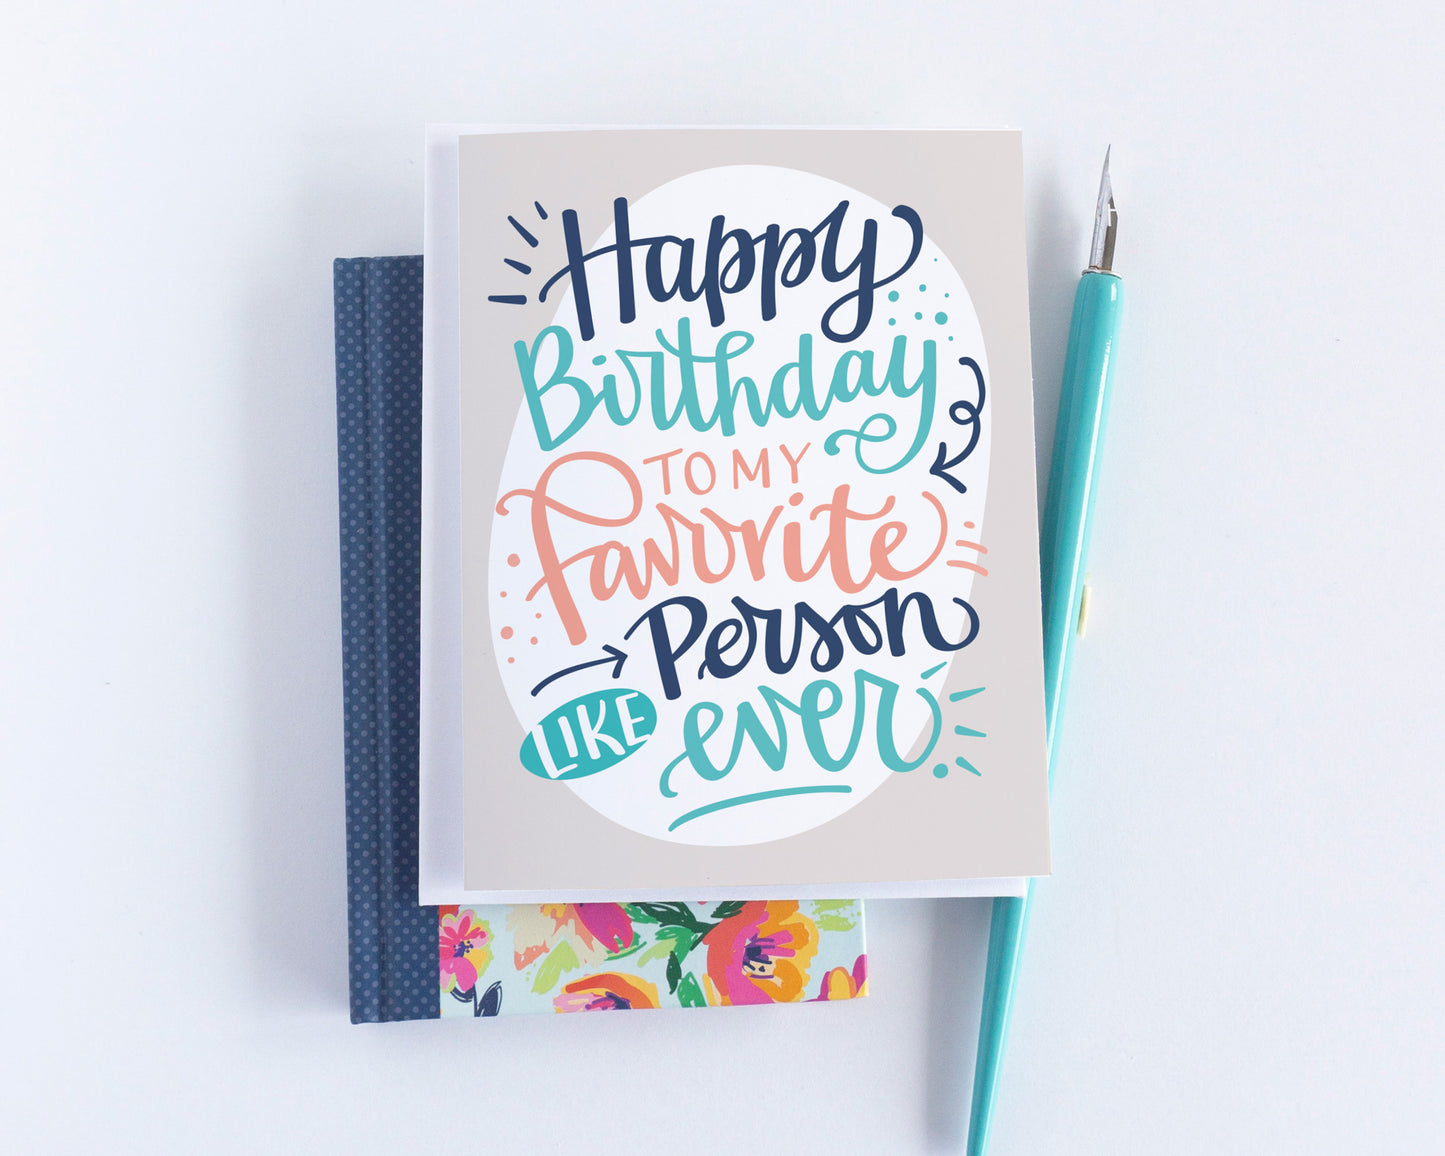 Happy
Birthday
TO MY
favorite
Person
LIKE ever